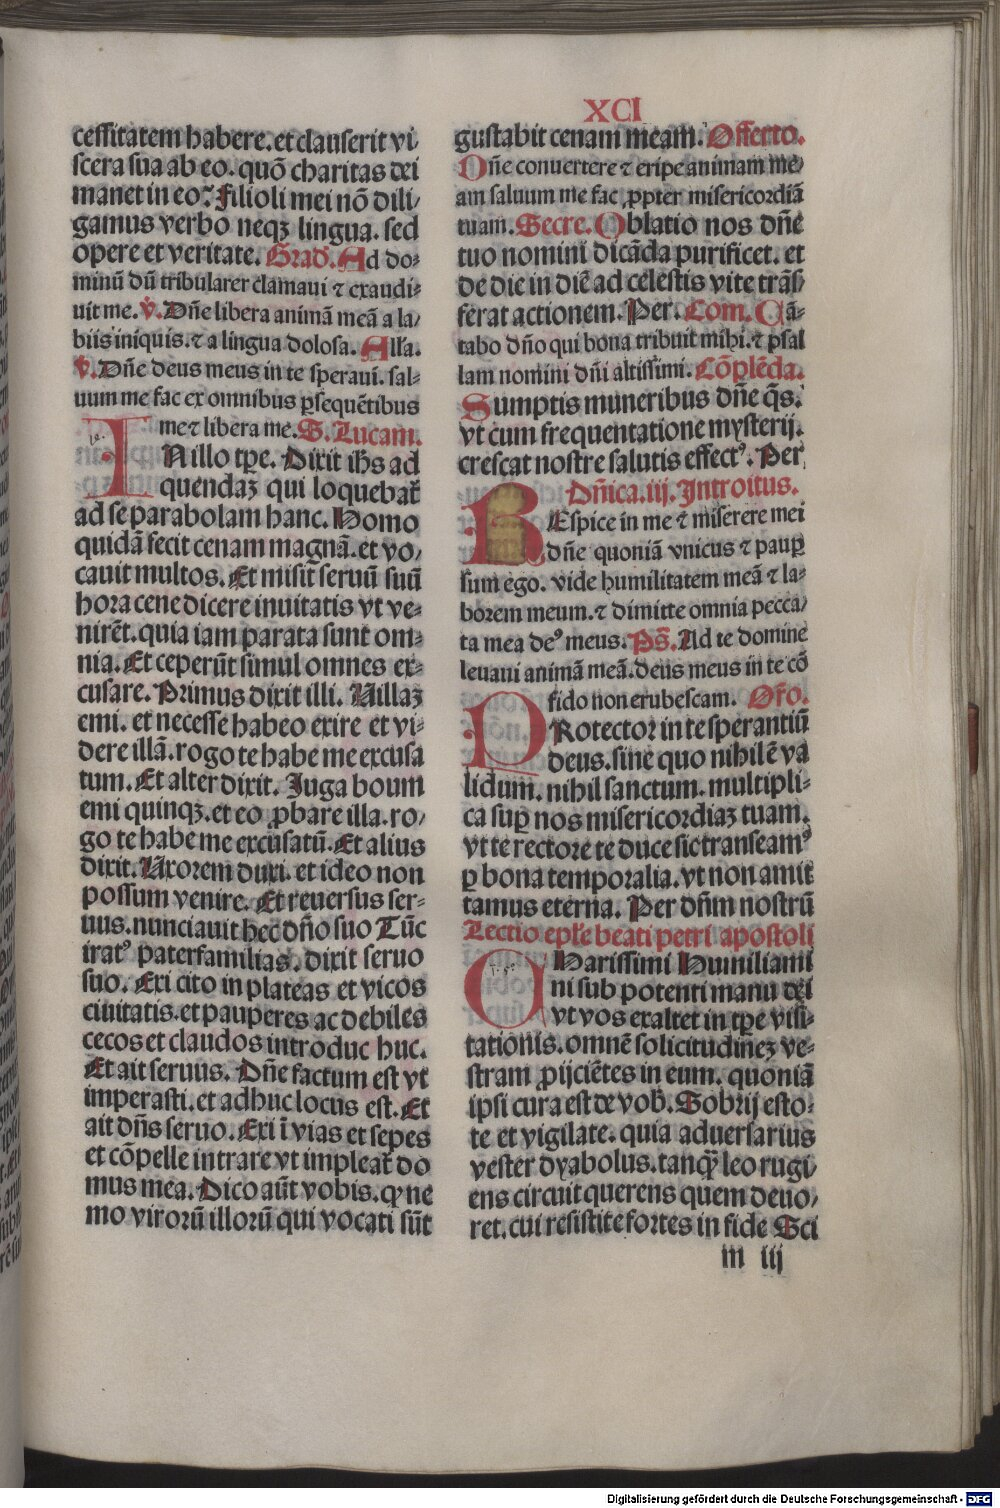 XCI
cessitatem habere. et clauserit vi
scera sua ab eo. quō charitas dei
manet in eo? Filioli mei nō dili
gamus verbo neqz lingua. sed
opere et veritate. Grad̄. Ad do⸗
minū dū tribularer clamaui ⁊ exaudi⸗
uit me. V̄. Dn̄e libera animā meā a la/
biis iniquis. ⁊ a lingua dolosa. Alla.
V̄. Dn̄e deus meus in te speraui. sal⸗
uum me fac ex omnibus ꝑsequētibus
me ⁊ libera me. S. Lucam.
IN illo tꝑe. Dixit ihs ad
quendaz qui loquebat̄
ad se parabolam hanc. Homo
quidā fecit cenam magnā. et vo/
cauit multos. Et misit seruū suū
hora cene dicere inuitatis vt ve⸗
nirēt. quia iam parata sunt om⸗
nia. Et ceperūt simul omnes ex⸗
cusare. Primus dixit illi. Villaz
emi. et necesse habeo exire et vi⸗
dere illā. rogo te habe me excusa
tum. Et alter dixit. Juga boum
emi quinqz. et eo ꝓbare illa. ro/
go te habe me excusatū. Et alius
dixit. Uxorem duxi. et ideo non
possum venire. Et reuersus ser⸗
uus. nunciauit hec dn̄o suo Tūc
iratꝰ paterfamilias. dixit seruo
suo. Exi cito in plateas et vicos
ciuitatis. et pauperes ac debiles
cecos et claudos introduc huc.
Et ait seruus. Dn̄e factum est vt
imperasti. et adhuc locus est. Et
ait dn̄s seruo. Exi ī vias et sepes
et cōpelle intrare vt impleat̄ do
mus mea. Dico aūt vobis. ꝙ ne
mo virorū illorū qui vocati sūt
gustabit cenam meam. Offerto.
Dn̄e conuertere ⁊ eripe animam me⸗
am saluum me fac ꝓpter misericordiā
tuam. Secre. Oblatio nos dn̄e
tuo nomini dicāda purificet. et
de die in diē ad celestis vite trās/
ferat actionem. Per. Com. Cā⸗
tabo dn̄o qui bona tribuit mihi. ⁊ psal
lam nomini dn̄i altissimi. Cōplēda.
Sumptis muneribus dn̄e q̄s.
vt cum frequentatione mysterij.
crescat nostre salutis effectꝰ. Per
Dn̄ica. iij. Introitus.
REspice in me ⁊ miserere mei
dn̄e quoniā vnicus ⁊ pauꝑ
sum ego. vide humilitatem meā ⁊ la⸗
borem meum. ⁊ dimitte omnia pecca/
ta mea deꝰ meus. Ps̄. Ad te domine
leuaui animā meā. deus meus in te cō
fido non erubescam. Oro.
PRotector in te sperantiū
deus. sine quo nihil ē va
lidum. nihil sanctum. multipli⸗
ca suꝑ nos misericordiaz tuam.
vt te rectore te duce sic transeamꝰ
ꝑ bona temporalia. vt non amit
tamus eterna. Per dn̄m nostrū
Lectio epl̄e beati petri apostoli
CHarissimi Humiliami
ni sub potenti manu dei
vt vos exaltet in tꝑe visi⸗
tationis. omnē solicitudinez ve⸗
stram ꝓijciētes in eum. quoniā
ipsi cura est de vob̄. Sobrij esto⸗
te et vigilate. quia aduersarius
vester dyabolus. tanꝙ leo rugi⸗
ens circuit querens quem deuo/
ret. cui resistite fortes in fide Sci
m iij
Digitalisierung gefördert durch die Deutsche Forschungsgemeinschaft - DFG